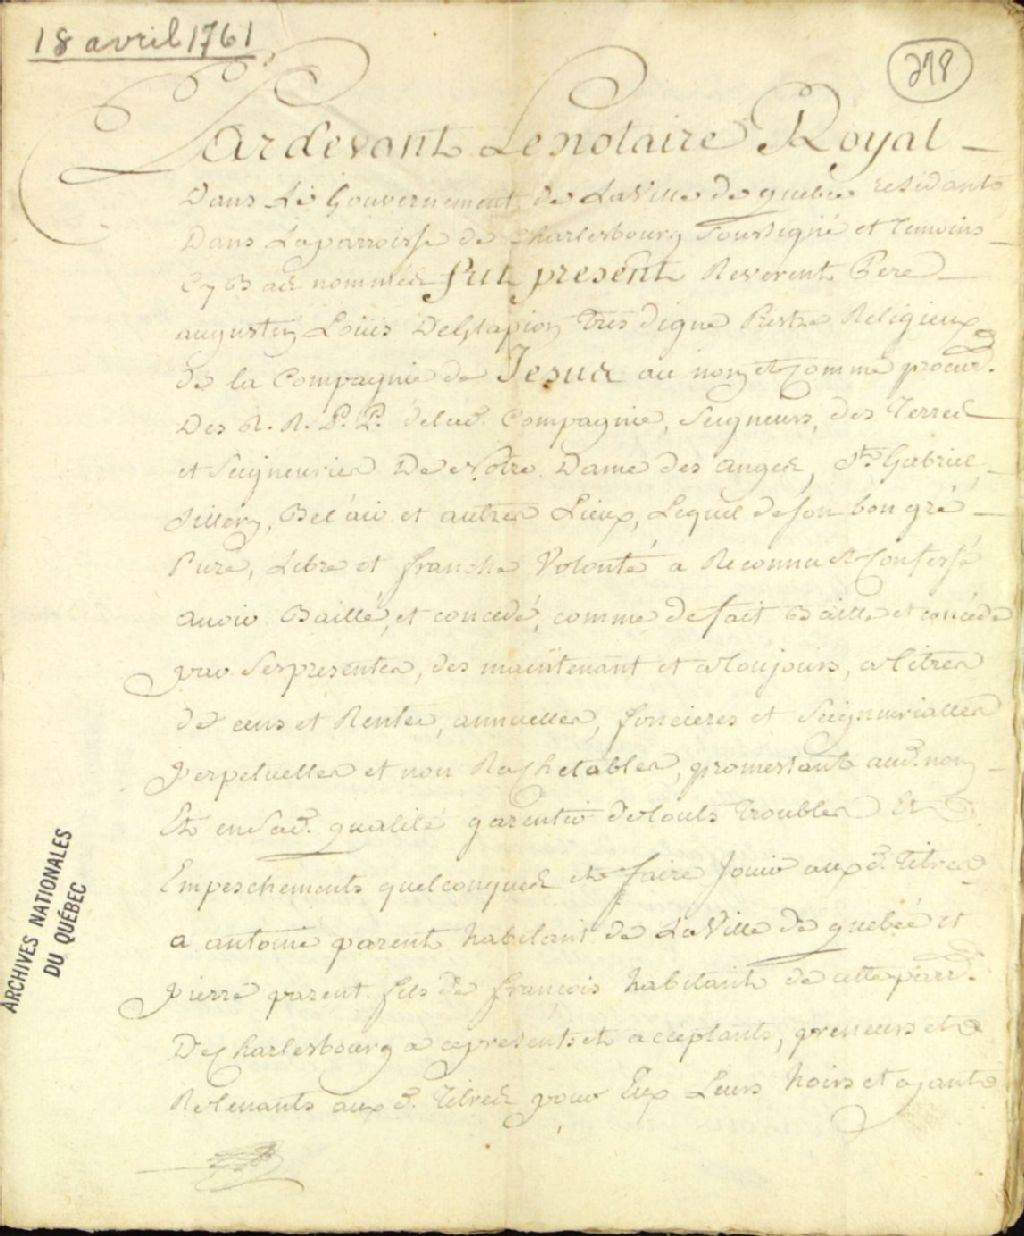 18 avril 1761
218
Pardevant Le notaire Royal
Dans Le Gouvernement de La Ville de quebec residant
Dans La parroisse de Charlesbourg Soussigné et Temoins
Cy Bas nommés fut present Reverent Pere
augustin Loüis De Glapion Tres digne Prestre Religieux
de la Compagnie de Jesus au nom et comme procur.
Des R. R. P. P. de lad. Compagnie, Seigneurs, des Terres
et Seigneuries De Notre Dame des anges, St. Gabriel
Sillery, Bel'air et autres Lieux, Lequel de son bon gré
Pure, Libre et franche Volonté a Reconnu et Confessé
avoir Baillé, et concedé, comme de fait Baille et concede
par Ses presentes, des maintenant et a toujours, a titre
de cens et Rentes, annuelles, foncieres et Seigneurialles
perpetuelles et non Rachetables, promestant aud. nom
Et en Sad. qualité garentir de touts Troubles Et
Empeschements quelconques et faire Jouir aux d. Titres
a antoine parent habitant de La Ville de quebec et
pierre parent fils de françois habitant de cette parr.
De Charlesbourg a ce presents et acceptants, preneurs et
Retenants aux d. Titres pour Eux Leurs hoirs et ayants
ARCHIVES NATIONALES
DU QUÉBEC